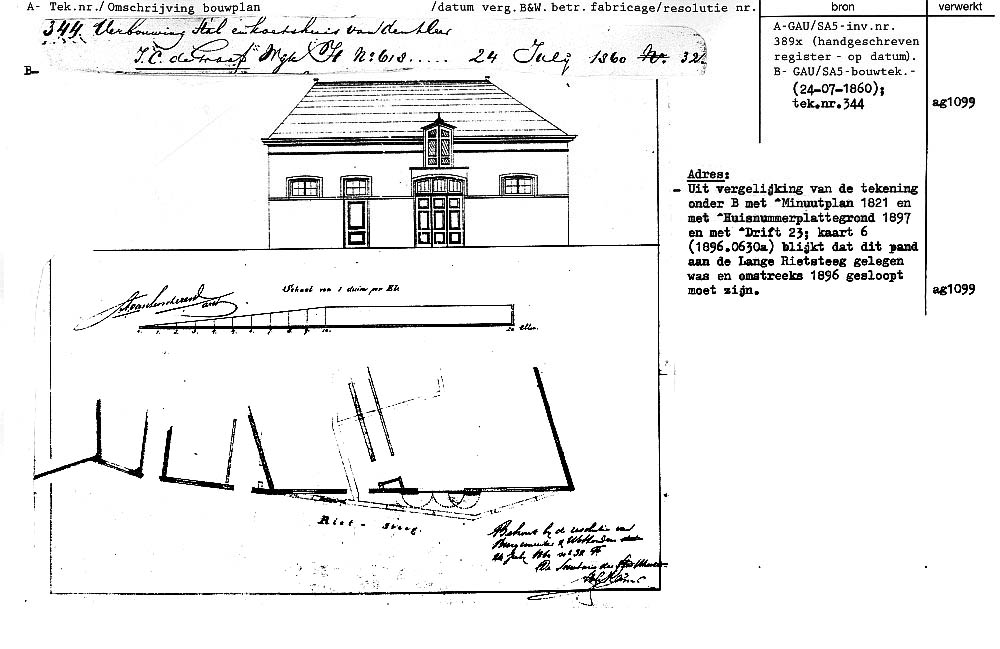 A- Tek.nr./ Omschrijving bouwplan /datum verg. B&W. betr. fabricage/resolutie nr.
bron
verwerkt
344. Verbouwing Stal en koetshuis van den Heer
J.C. de Graaf Wijk H N: 618..... 24 July 1860 Nr. 32
B-
A-GAU/SA5-inv.nr.
389x (handgeschreven
register - op datum).
B- GAU/SA5-bouwtek.-
(24-07-1860);
tek.nr.344
ag1099
Adres:
- Uit vergelijking van de tekening
onder B met ^Minuutplan 1821 en
met ^Huisnummerplattegrond 1897
en met ^Drift 23; kaart 6
(1896.0630a) blijkt dat dit pand
aan de Lange Rietsteeg gelegen
was en omstreeks 1896 gesloopt
moet zijn.
ag1099
Schaal van 1 duim per El.
0. 1. 2. 3. 4. 5. 6. 7. 8. 9. 10. 20 Ellen.
Riet - Steeg.
Behoort bij de resolutie van
Burgemeester & Wethouders
24 July 1860 no 32 F
De Secretaris der